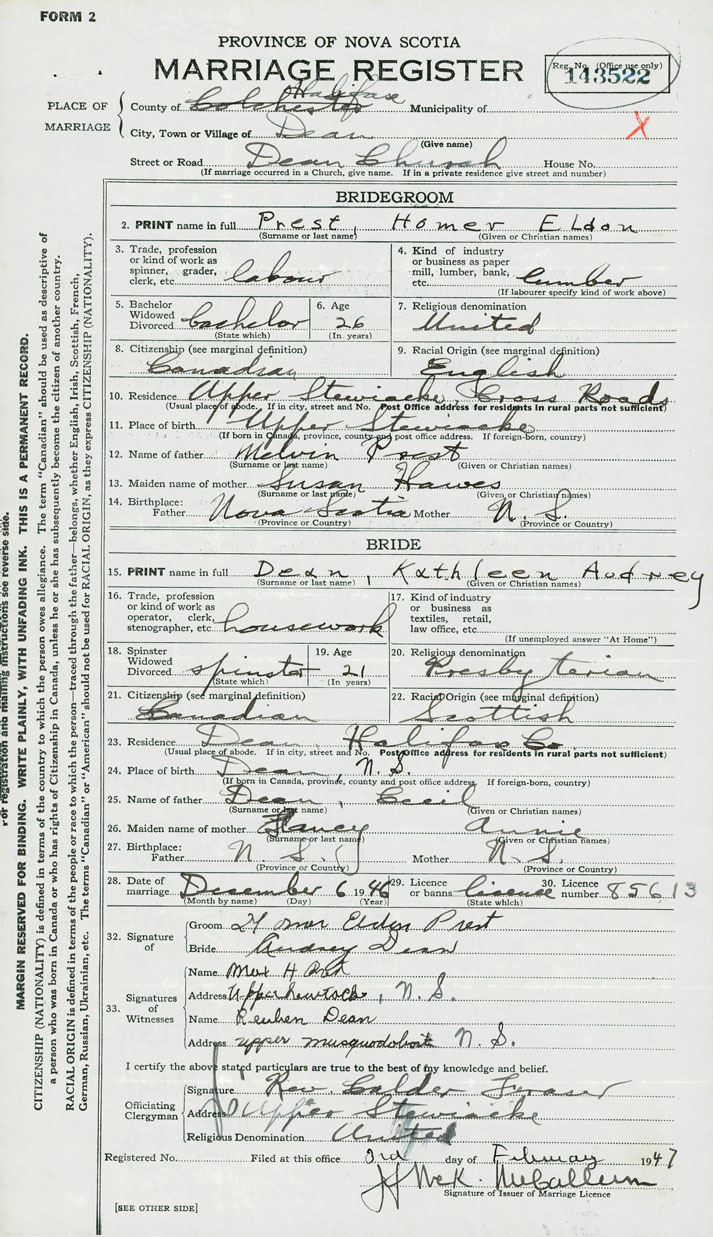 FORM 2
PROVINCE OF NOVA SCOTIA
MARRIAGE REGISTER
Reg. No. (Office use only)
143522
PLACE OF MARRIAGE
County of Colchester Halifax Municipality of
X
City, Town or Village of Dean
(Give name)
Street or Road Dean Church House No.
(If marriage occurred in a Church, give name. If in a private residence give street and number)
BRIDEGROOM
2. PRINT name in full Prest, Homer Eldon
(Surname or last name) (Given or Christian names)
3. Trade, profession or kind of work as spinner, grader, clerk, etc. labour
4. Kind of industry or business as paper mill, lumber, bank, etc. lumber
(If labourer specify kind of work above)
5. Bachelor Widowed Divorced bachelor
(State which)
6. Age 26
(In years)
7. Religious denomination United
8. Citizenship (see marginal definition) Canadian
9. Racial Origin (see marginal definition) English
10. Residence Upper Stewiacke, Cross Roads
(Usual place of abode. If in city, street and No. Post Office address for residents in rural parts not sufficient)
11. Place of birth Upper Stewiacke
(If born in Canada, province, county and post office address. If foreign-born, country)
12. Name of father Melvin Prest
(Surname or last name) (Given or Christian names)
13. Maiden name of mother Susan Hawes
(Surname or last name) (Given or Christian names)
14. Birthplace: Father Nova Scotia Mother N. S.
(Province or Country) (Province or Country)
BRIDE
15. PRINT name in full Dean, Kathleen Audrey
(Surname or last name) (Given or Christian names)
16. Trade, profession or kind of work as operator, clerk, stenographer, etc. housework
17. Kind of industry or business as textiles, retail, law office, etc.
(If unemployed answer "At Home")
18. Spinster Widowed Divorced spinster
(State which)
19. Age 21
(In years)
20. Religious denomination Presbyterian
21. Citizenship (see marginal definition) Canadian
22. Racial Origin (see marginal definition) Scottish
23. Residence Dean, Halifax Co
(Usual place of abode. If in city, street and No. Post Office address for residents in rural parts not sufficient)
24. Place of birth Dean, N. S.
(If born in Canada, province, county and post office address. If foreign-born, country)
25. Name of father Dean, Cecil
(Surname or last name) (Given or Christian names)
26. Maiden name of mother Annie
(Surname or last name) (Given or Christian names)
27. Birthplace: Father N. S. Mother N. S.
(Province or Country) (Province or Country)
28. Date of marriage December 6 1946
(Month by name) (Day) (Year)
29. Licence or banns license
(State which)
30. Licence number 85613
32. Signature of
Groom Homer Eldon Prest
Bride Audrey Dean
33. Signatures of Witnesses
Name Max H
Address Upper, N. S.
Name Reuben Dean
Address upper musquodoboit N. S.
I certify the above stated particulars are true to the best of my knowledge and belief.
Officiating Clergyman
Signature Rev. Calder Fraser
Address Upper Stewiacke
Religious Denomination United
Registered No. Filed at this office 3rd day of February 1947
McK. McCallum
Signature of Issuer of Marriage Licence
[SEE OTHER SIDE]
CITIZENSHIP (NATIONALITY) is defined in terms of the country to which the person owes allegiance. The term "Canadian" should be used as descriptive of
a person who was born in Canada or who has rights of Citizenship in Canada, unless he or she has subsequently become the citizen of another country.
RACIAL ORIGIN is defined in terms of the people or race to which the person—traced through the father—belongs, whether English, Irish, Scottish, French,
German, Russian, Ukrainian, etc. The terms "Canadian" or "American" should not be used for RACIAL ORIGIN, as they express CITIZENSHIP (NATIONALITY).
MARGIN RESERVED FOR BINDING. WRITE PLAINLY, WITH UNFADING INK. THIS IS A PERMANENT RECORD.
For registration and mailing instructions see reverse side.